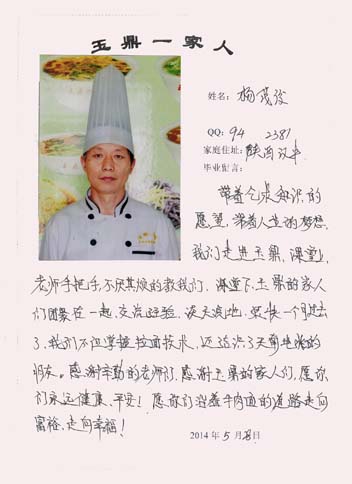 玉鼎一家人
姓名：杨茂俊
QQ：94 2381
家庭住址：陕西汉中
毕业留言：
带着人生的梦想
我们走进玉鼎，课堂上，
老师手把手，不厌其烦的教我们，课堂下，玉鼎的家人
们团聚在一起，交流经验，谈天说地，
了，我们不但掌握拉面技术，还结识了天南地北的
朋友。感谢辛勤的老师们，感谢玉鼎的家人们，愿你
们永远健康、平安！愿你们沿着牛肉面的道路走向
富裕，走向幸福！
2014年5月28日